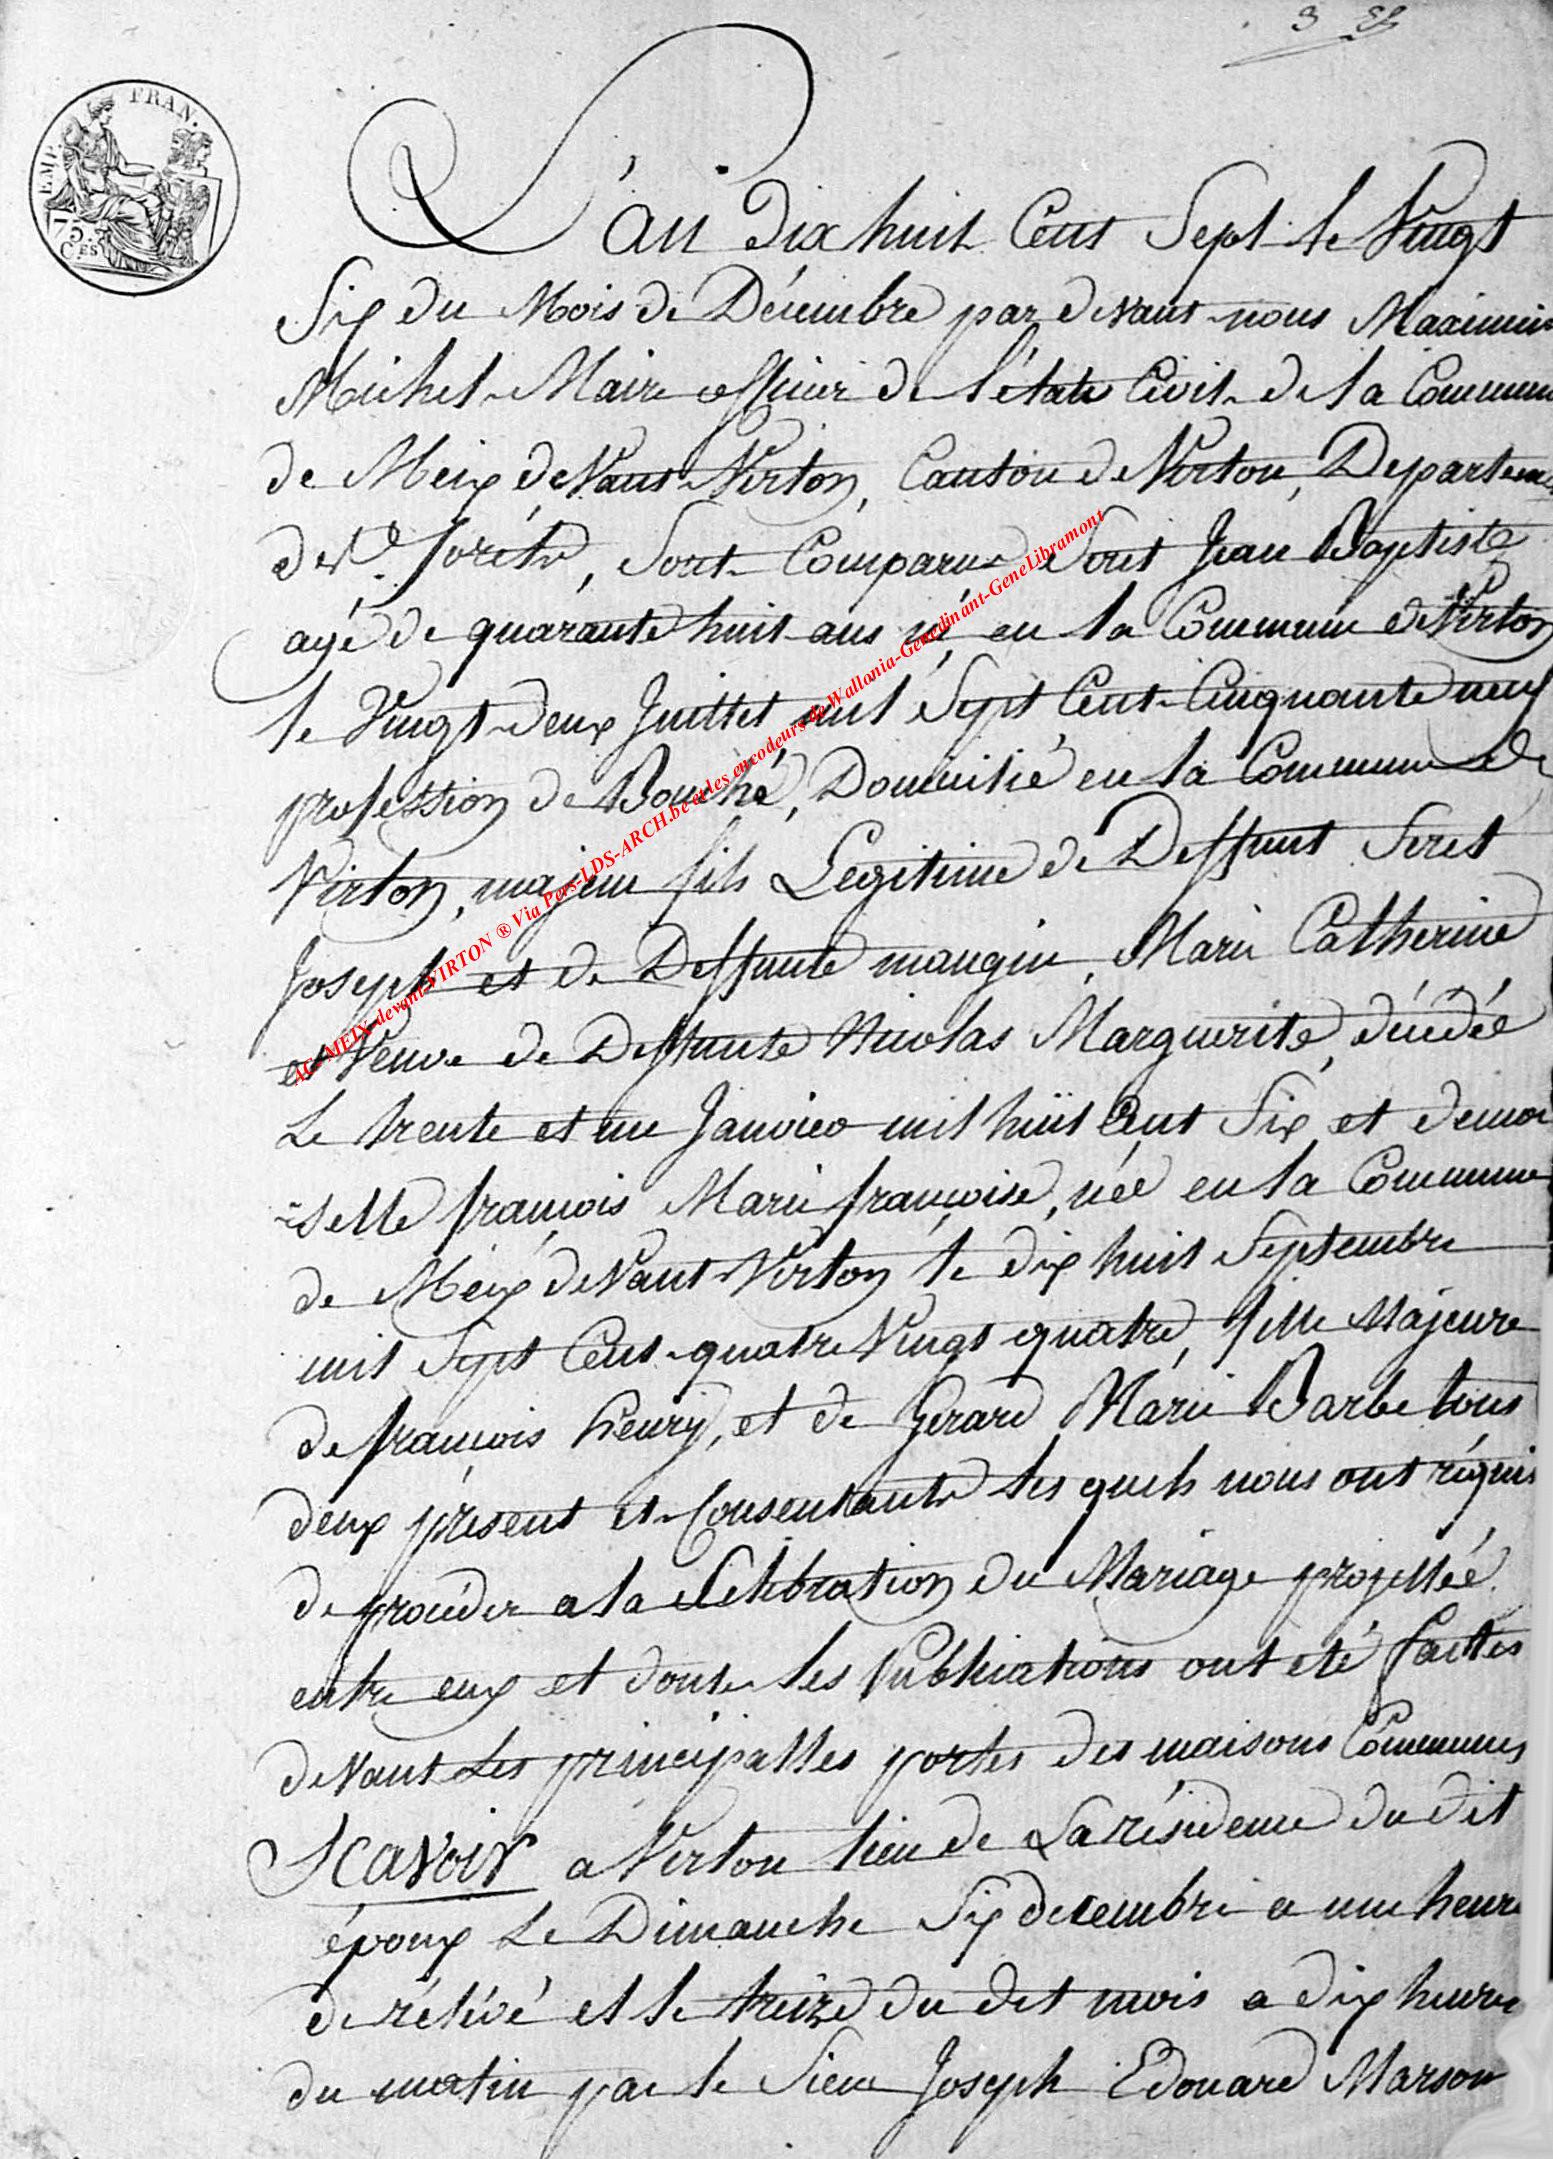 3
EMP. FRAN.
75.
C.ES
L'an dix huit Cent Sept le Vingt
Six du Mois de Décembre par devant nous Maximin
Michel Maire officier de l'état Civil de la Commun
de Meix deVant Virton, Canton de Virton, Departem
de Forêts, Sont Comparus Soret Jean Baptiste
agé de quarante huit ans né en la Commune de Virton
le Vingt deux Juillet mil Sept Cent Cinquante neuf
profession de Bouché, Domicilié en la Commune de
Virton, majeur fils Legitime de Deffunt Soret
Joseph et de Deffunte mangin, Marie Catherine
et Veuve de Deffunte Nicolas Marguerite, décédée
Le trente et un Janvier mil huit Cent Six et demoi
selle françois Marie françoise, née en la Commune
de Meix deVant Virton le dix huit Septembre
mil Sept Cent quatre Vingt quatre, fille Majeure
de françois henry, et de Gerard Marie Barbe tous
deux présent et Consentants les quels nous ont réquis
de procéder a la Célébration du Mariage projettée
entre eux et dont les Publications ont eté faittes
deVant Les principalles portes des maisons Communes
SCAVOIR a Virton lieu de La résidence du dit
époux Le Dimanche Six decembre a une heure
de rélévé et le treize du dit mois a dix heures
du matin par le Sieur Joseph Edouard Marson
AC MEIX-devant-VIRTON ® Via Pers-LDS-ARCH.be et les encodeurs de Wallonia-Genedinant-GeneLibramont